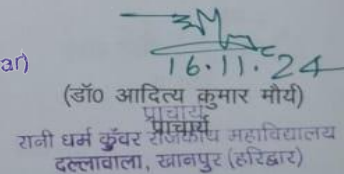 ar)
16.11.24
(डॉ0 आदित्य कुमार मौर्य)
प्राचार्य
प्राचार्य
रानी धर्म कुँवर राजकीय महाविद्यालय
दल्लावाला, खानपुर (हरिद्वार)